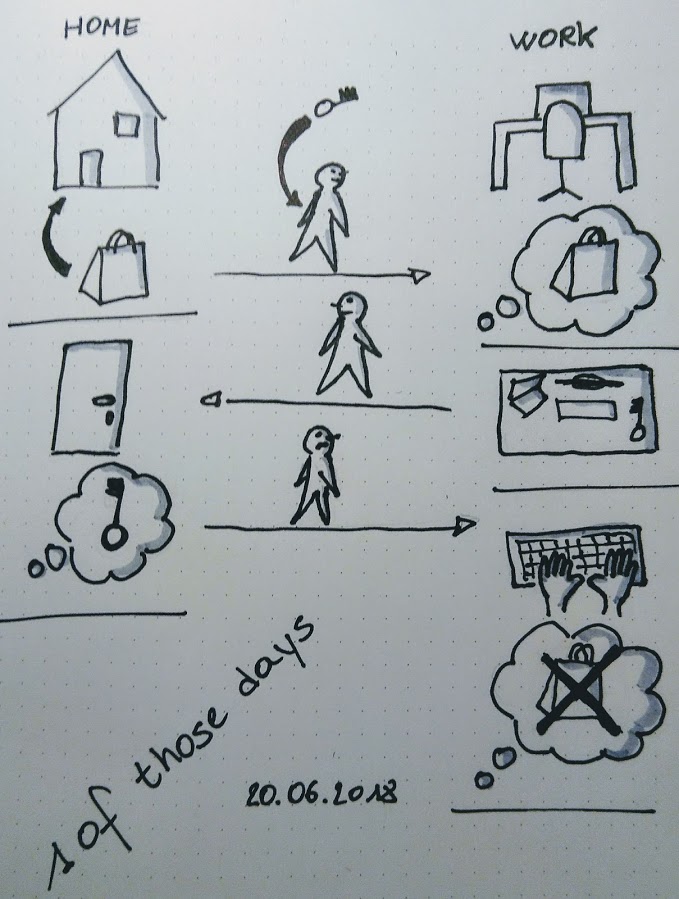 HOME
WORK
1 of those days
20.06.2018